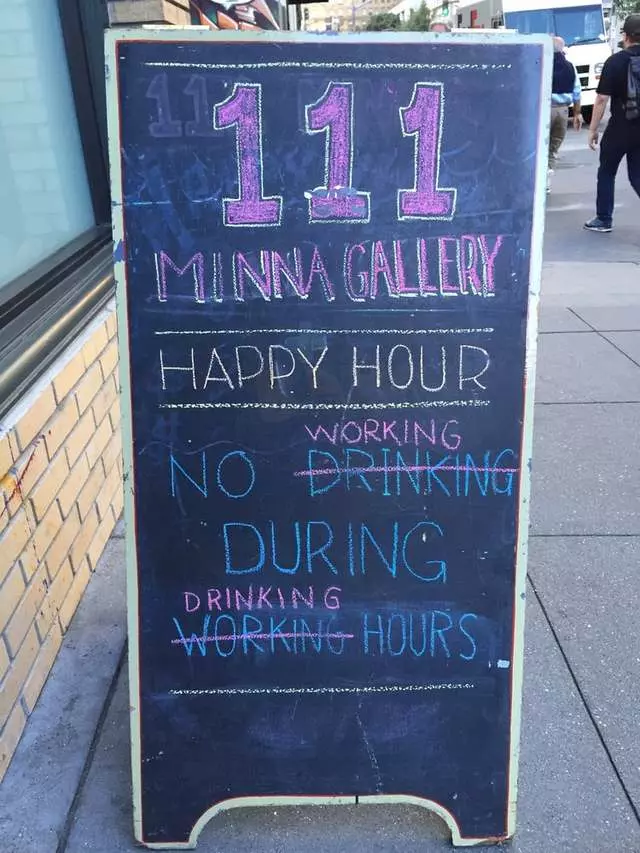 111
MINNA GALLERY
HAPPY HOUR
WORKING
NO DRINKING
DURING
DRINKING
WORKING HOURS